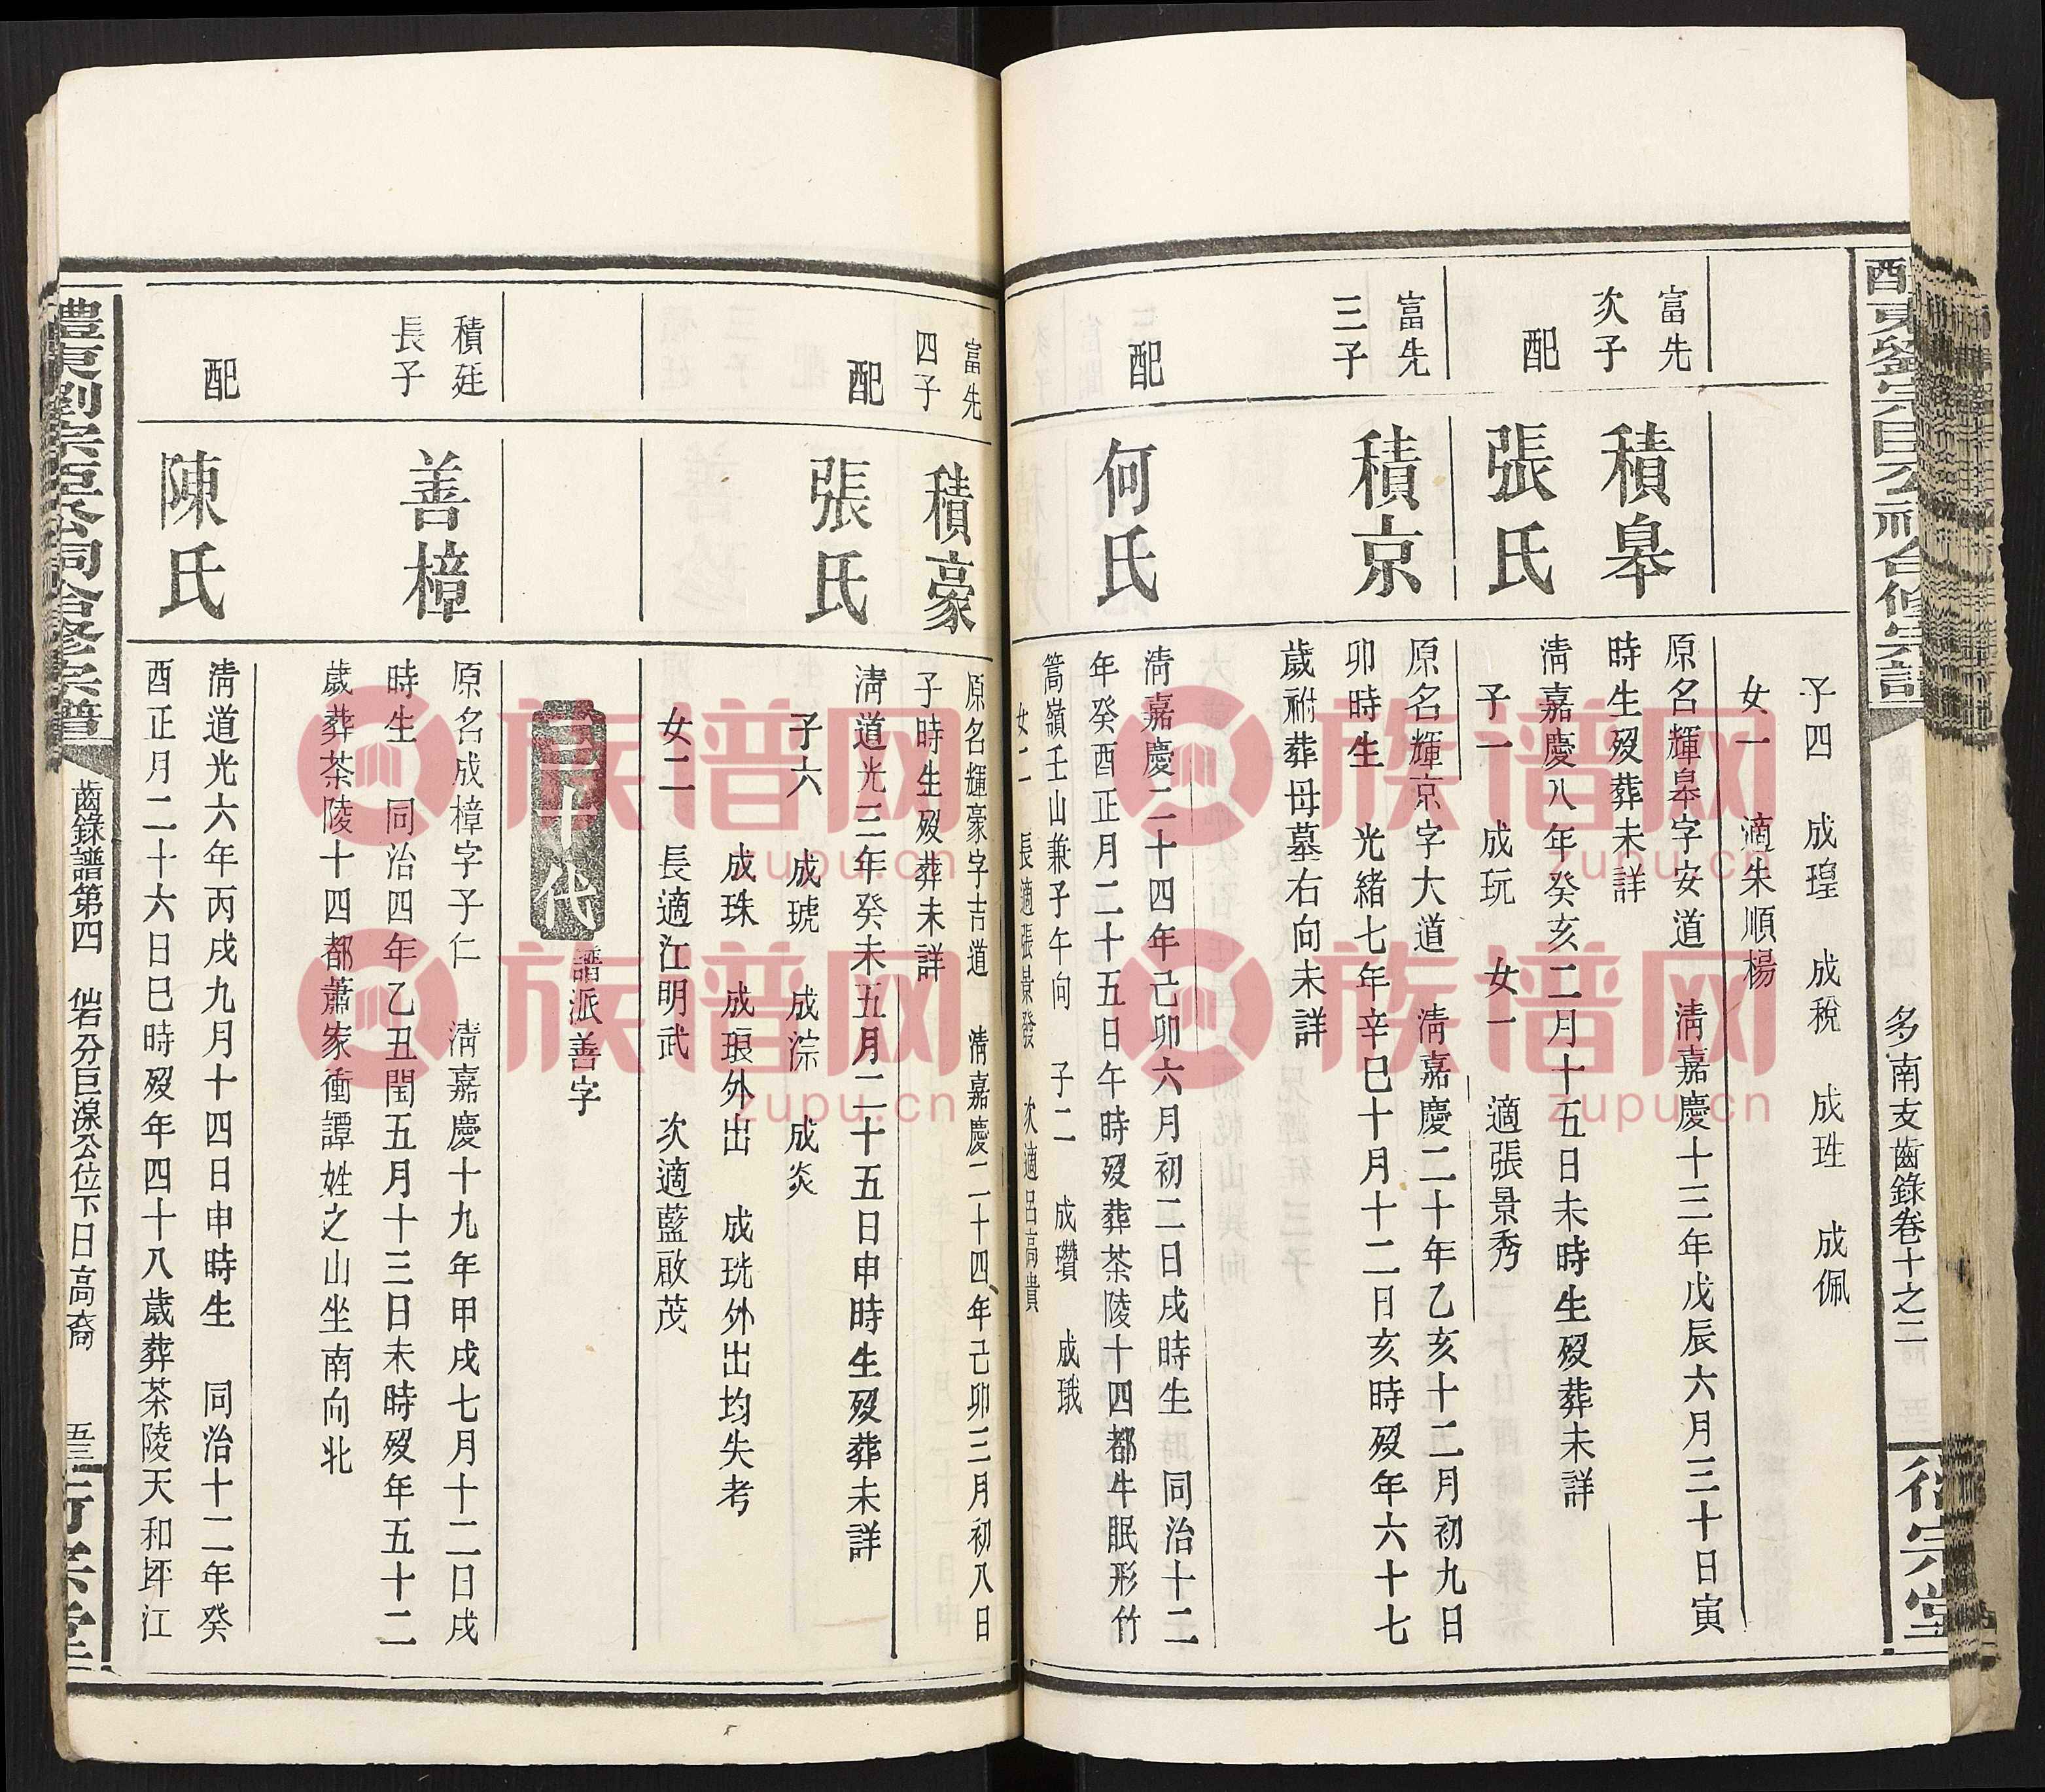 多南支齒錄卷十之二
子四　成瑝　成稅　成珄　成佩
女一　適朱順楊
富先
次子
積皋
原名輝皋字安道　清嘉慶十三年戊辰六月三十日寅
時生歿葬未詳
配
張氏
清嘉慶八年癸亥二月十五日未時生歿葬未詳
子一　成玩　女一　適張景秀
富先
三子
積京
原名輝京字大道　清嘉慶二十年乙亥十二月初九日
卯時生　光緒七年辛巳十月十二日亥時歿年六十七
歲祔葬母墓右向未詳
配
何氏
清嘉慶二十四年己卯六月初二日戌時生　同治十二
年癸酉正月二十五日午時歿葬茶陵十四都牛眠形竹
篙嶺壬山兼子午向　子二　成瓚　成珴
女二　長適張景發　次適呂高貴
富先
四子
積豪
原名輝豪字吉道　清嘉慶二十四年己卯三月初八日
子時生歿葬未詳
配
張氏
清道光三年癸未五月二十五日申時生歿葬未詳
子六　成琥　成淙　成炎
成珠　成琅外出　成珖外出均失考
女二　長適江明武　次適藍啟茂
三十代
譜派善字
積廷
長子
善樟
原名成樟字子仁　清嘉慶十九年甲戌七月十二日戌
時生　同治四年乙丑閏五月十三日未時歿年五十二
歲葬茶陵十四都蕭家衝譚姓之山坐南向北
配
陳氏
清道光六年丙戌九月十四日申時生　同治十二年癸
酉正月二十六日巳時歿年四十八歲葬茶陵天和坪江
醴東劉宗臣公祠合修宗譜
齒錄譜第四　岩分巨湶公位下日高裔
五三
族谱网
zupu.cn
族谱网
zupu.cn
族谱网
zupu.cn
族谱网
zupu.cn